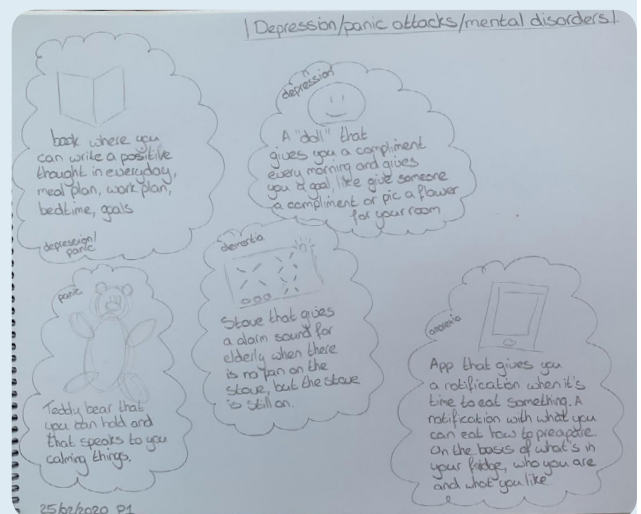 Depression/panic attacks/mental disorders
book where you
can write a positive
thought in everyday,
meal plan, work plan,
bedtime, goals
depression/
panic
depression
A "doll" that
gives you a compliment
every morning and gives
you a goal, like give someone
a compliment or pic a flower
for your room
panic
Teddy bear that
you can hold and
that speaks to you
calming things.
dementia
Stove that gives
a alarm sound for
elderly when there
is no pan on the
stove, but the stove
is still on.
anorexia
App that gives you
a notification when it's
time to eat something. A
notification with what you
can eat how to preapare.
On the basis of what's in
your fridge, who you are
and what you like
25/02/2020 P1